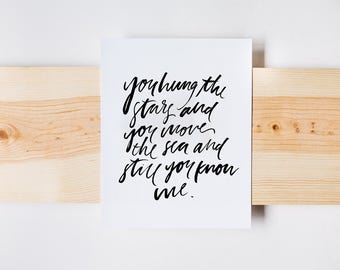 you hung the
stars and
you move
the sea and
still you know
me.